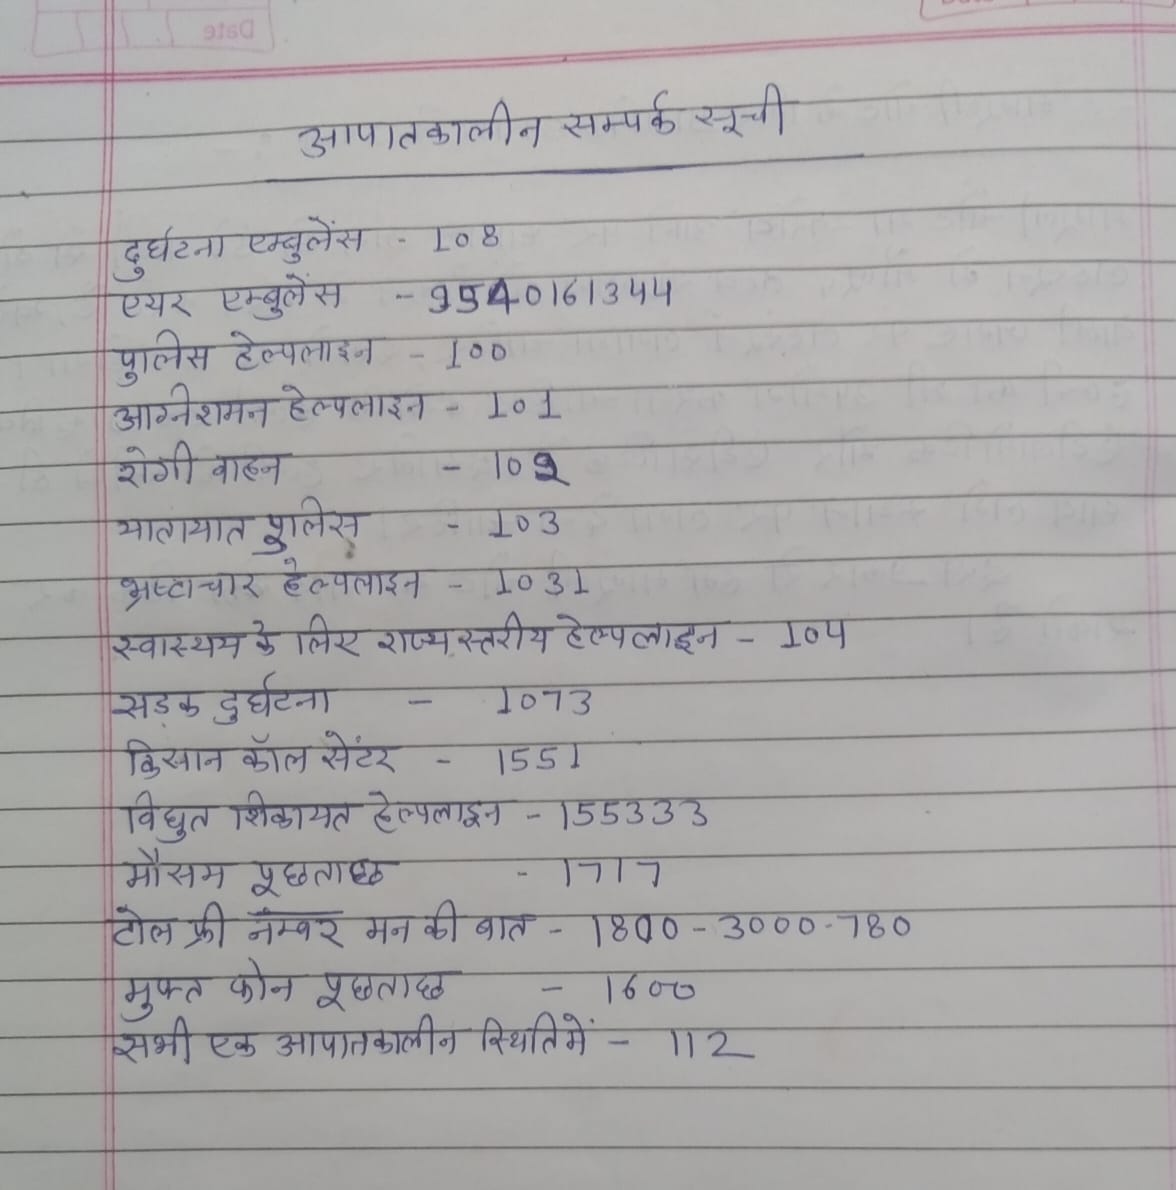 Date
आपातकालीन सम्पर्क सूची
दुर्घटना एम्बुलेंस - 108
एयर एम्बुलेंस - 9540161344
पुलिस हेल्पलाइन - 100
अग्निशमन हेल्पलाइन - 101
रोगी वाहन - 102
यातायात पुलिस - 103
भ्रष्टाचार हेल्पलाइन - 1031
स्वास्थय के लिए राज्य स्तरीय हेल्पलाइन - 104
सड़क दुर्घटना - 1073
किसान कॉल सेंटर - 1551
विधुत शिकायत हेल्पलाइन - 155333
मौसम पूछताछ - 1717
टोल फ्री नम्बर मन की बात - 1800-3000-780
मुफ्त फोन पूछताछ - 1600
सभी एक आपातकालीन स्थिति में - 112